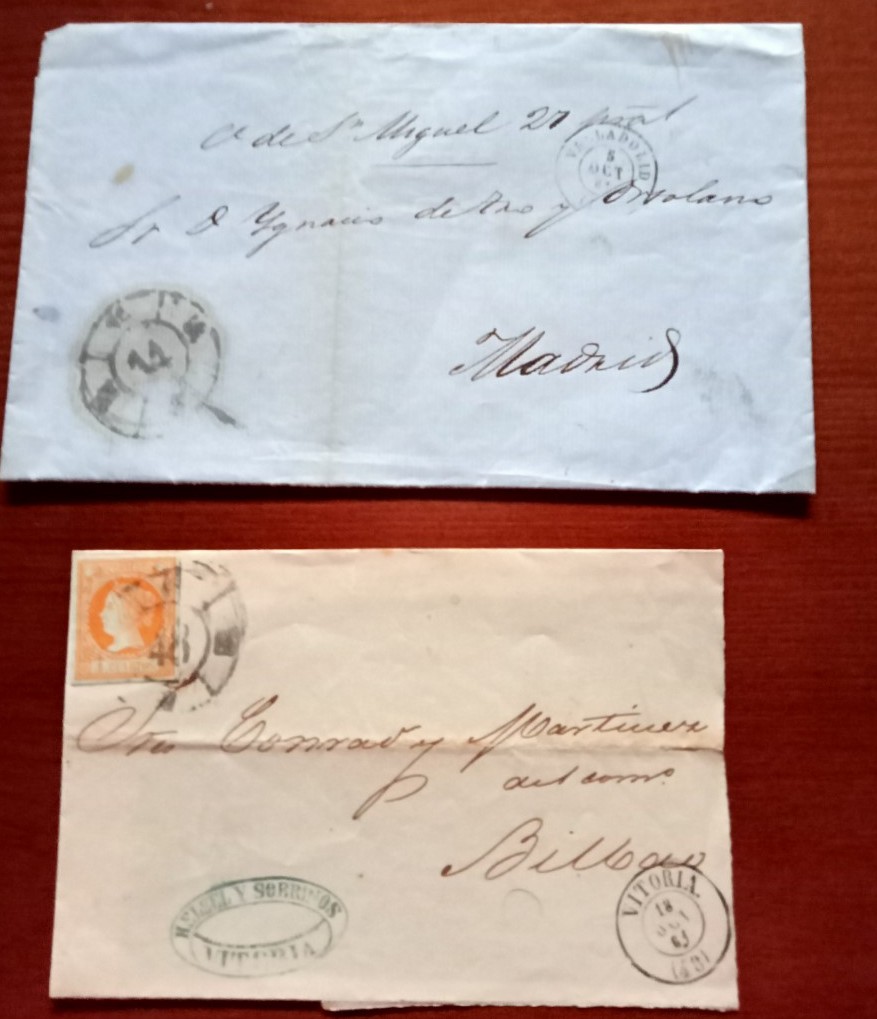 C de Sn Miguel 27 pral
VALLADOLID
5
OCT
Sr D Ygnacio de y
14
Madrid
48
Sres Conrad y Martinez
del como
Bilbao
Y SOBRINOS
VITORIA
VITORIA.
18
OCT
61
(48)